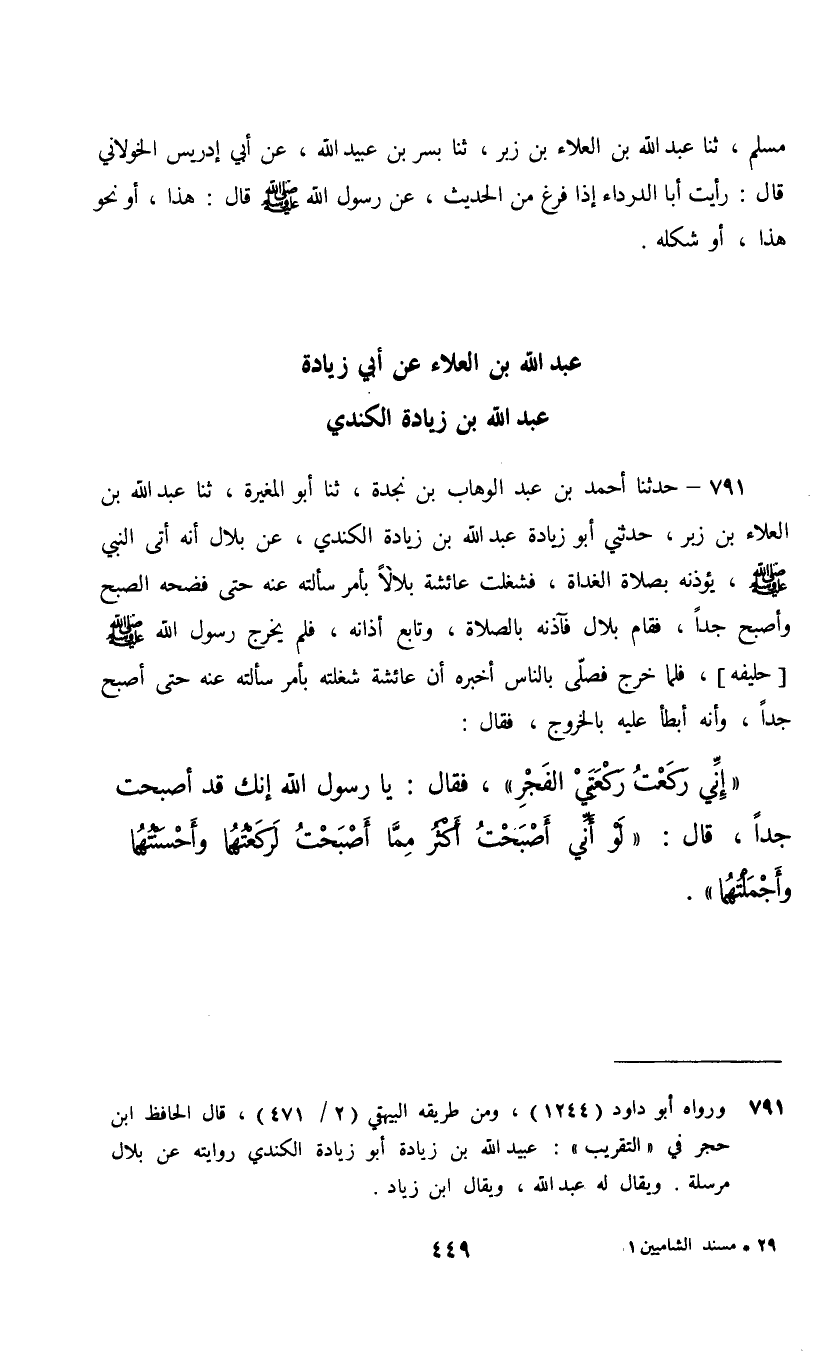 مسلم ، ثنا عبد الله بن العلاء بن زبر ، ثنا بسر بن عبيد الله ، عن أبي إدريس الخولاني
قال : رأيت أبا الدرداء إذا فرغ من الحديث ، عن رسول الله ﷺ قال : هذا ، أو نحو
هذا ، أو شكله .
عبد الله بن العلاء عن أبي زيادة
عبد الله بن زيادة الكندي
٧٩١ – حدثنا أحمد بن عبد الوهاب بن نجدة ، ثنا أبو المغيرة ، ثنا عبد الله بن
العلاء بن زبر ، حدثني أبو زيادة عبد الله بن زيادة الكندي ، عن بلال أنه أتى النبي
ﷺ ، يؤذنه بصلاة الغداة ، فشغلت عائشة بلالاً بأمر سألته عنه حتى فضحه الصبح
وأصبح جداً ، فقام بلال فآذنه بالصلاة ، وتابع أذانه ، فلم يخرج رسول الله ﷺ
[ حليفه ] ، فلما خرج فصلّى بالناس أخبره أن عائشة شغلته بأمر سألته عنه حتى أصبح
جداً ، وأنه أبطأ عليه بالخروج ، فقال :
« إِنِّي رَكَعْتُ رَكْعَتَيْ الفَجْرِ» ، فقال : يا رسول الله إنك قد أصبحت
جداً ، قال : « لَوْ أَنِّي أَصْبَحْتُ أَكْثَرُ مِمَّا أَصْبَحْتُ لَرَكَعْتُهُا وأَحْسَنْتُهُا
وأَجْمَلْتُهُا » .
٧٩١ ورواه أبو داود (١٢٤٤) ، ومن طريقه البيهقي (٢ / ٤٧١) ، قال الحافظ ابن
حجر في « التقريب » : عبيد الله بن زيادة أبو زيادة الكندي روايته عن بلال
مرسلة . ويقال له عبد الله ، ويقال ابن زياد .
٢٩ • مسند الشاميين ١
٤٤٩